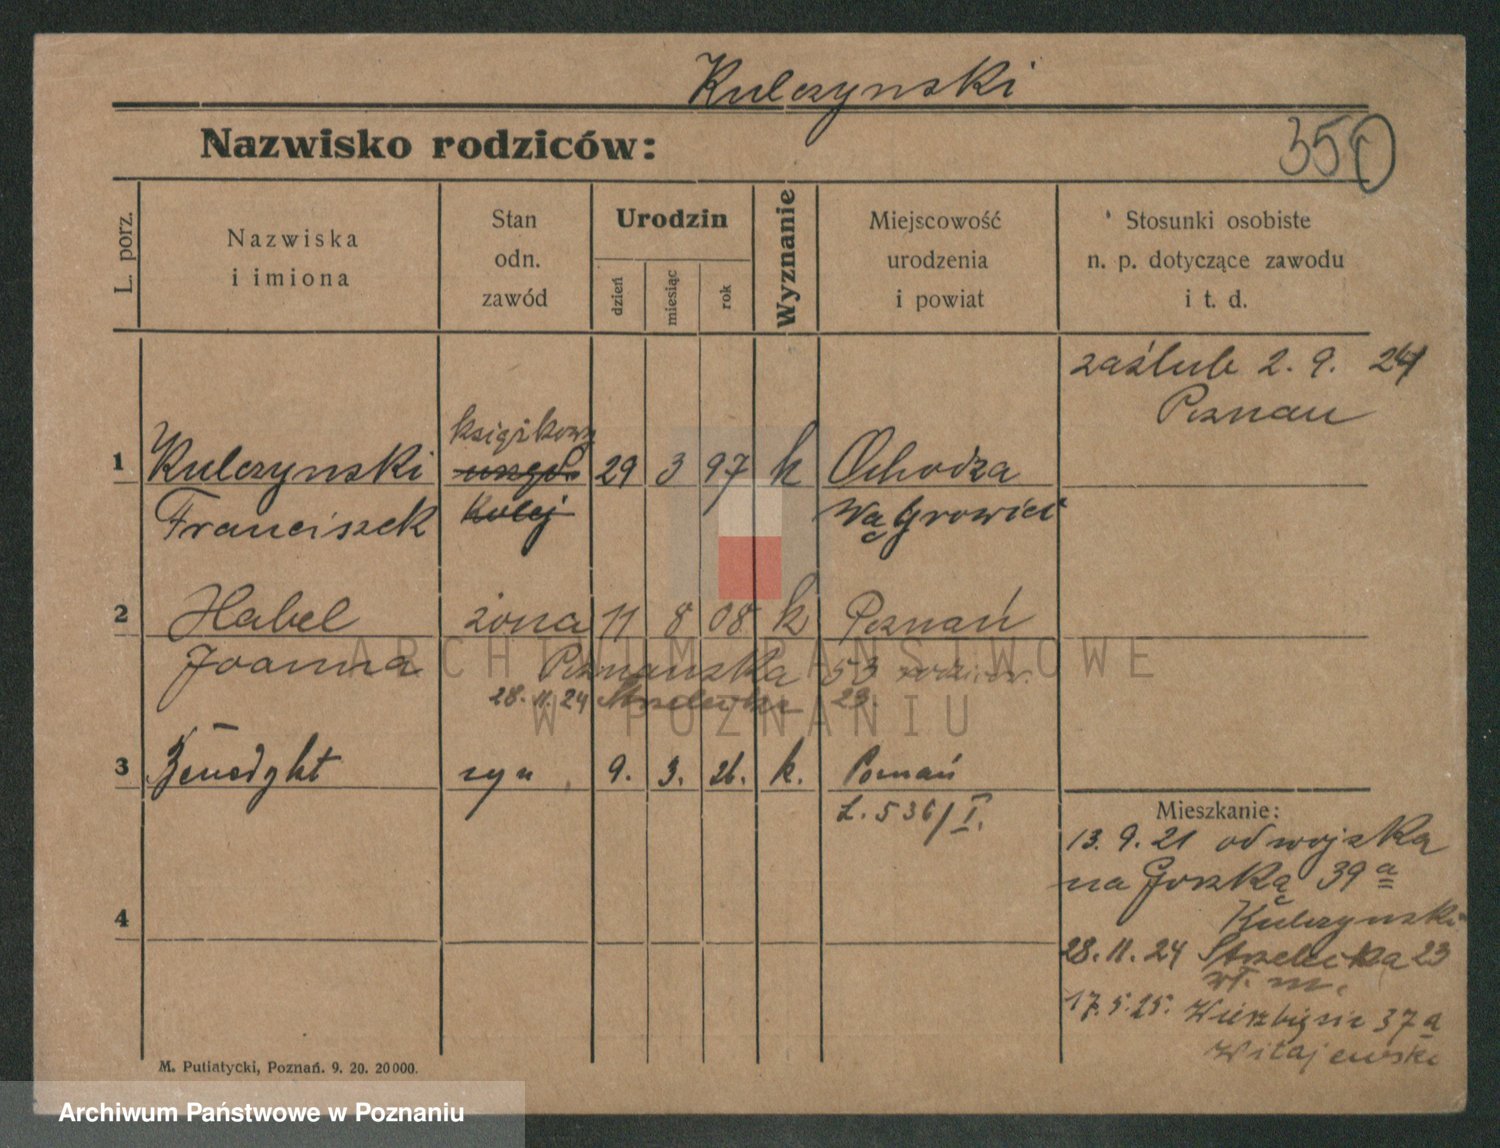 Kulczynski
Nazwisko rodziców:
350
L. porz.
Nazwiska
i imiona
Stan
odn.
zawód
Urodzin
dzień
miesiąc
rok
Wyznanie
Miejscowość
urodzenia
i powiat
Stosunki osobiste
n. p. dotyczące zawodu
i t. d.
zaślub 2. 9. 24
Poznan
książkowy
1 Kulczynski 29 3 97 k Ochodza
Franciszek kolej Wągrowiec
2 Habel żona 11 8 08 k Poznań
Joanna Poznanska 53
28. 11. 24 23.
3 Benedykt syn 9. 3. 26. k. Poznań
L. 536/I.
Mieszkanie:
13. 9. 21 od wojska
na Gorską 39a
Kulczynski
4
28. 11. 24 Strzelecka 23
wł. m.
17. 5. 25. Wierzbięcic 37a
Witajewski
M. Putiatycki, Poznań. 9. 20. 20000.
ARCHIWUM PAŃSTWOWE
W POZNANIU
Archiwum Państwowe w Poznaniu